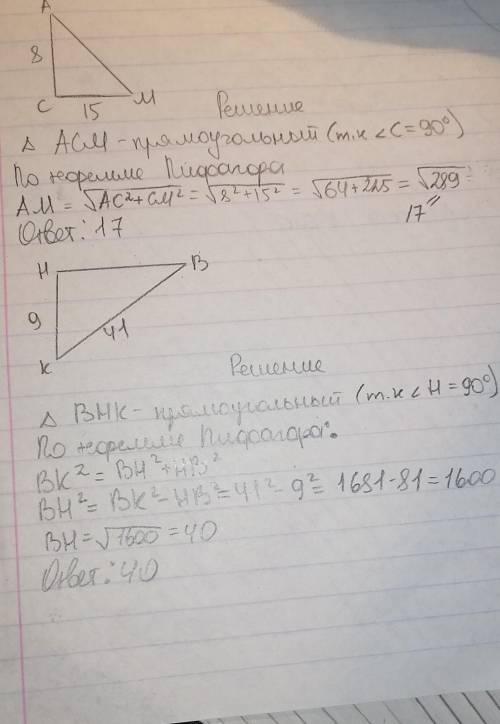 A
8
C 15 M
Решение
Δ ACM - прямоугольный (т.к <C=90°)
По теореме Пифагора
AM = √AC²+CM² = √8²+15² = √64+225 = √289 =
17
Ответ: 17
H B
9
41
K
Решение
Δ BHK - прямоугольный (т.к <H=90°)
По теореме Пифагора:
BK² = BH²+HB²
BH² = BK²-HB² = 41²-9² = 1681-81=1600
BH = √1600 = 40
Ответ: 40